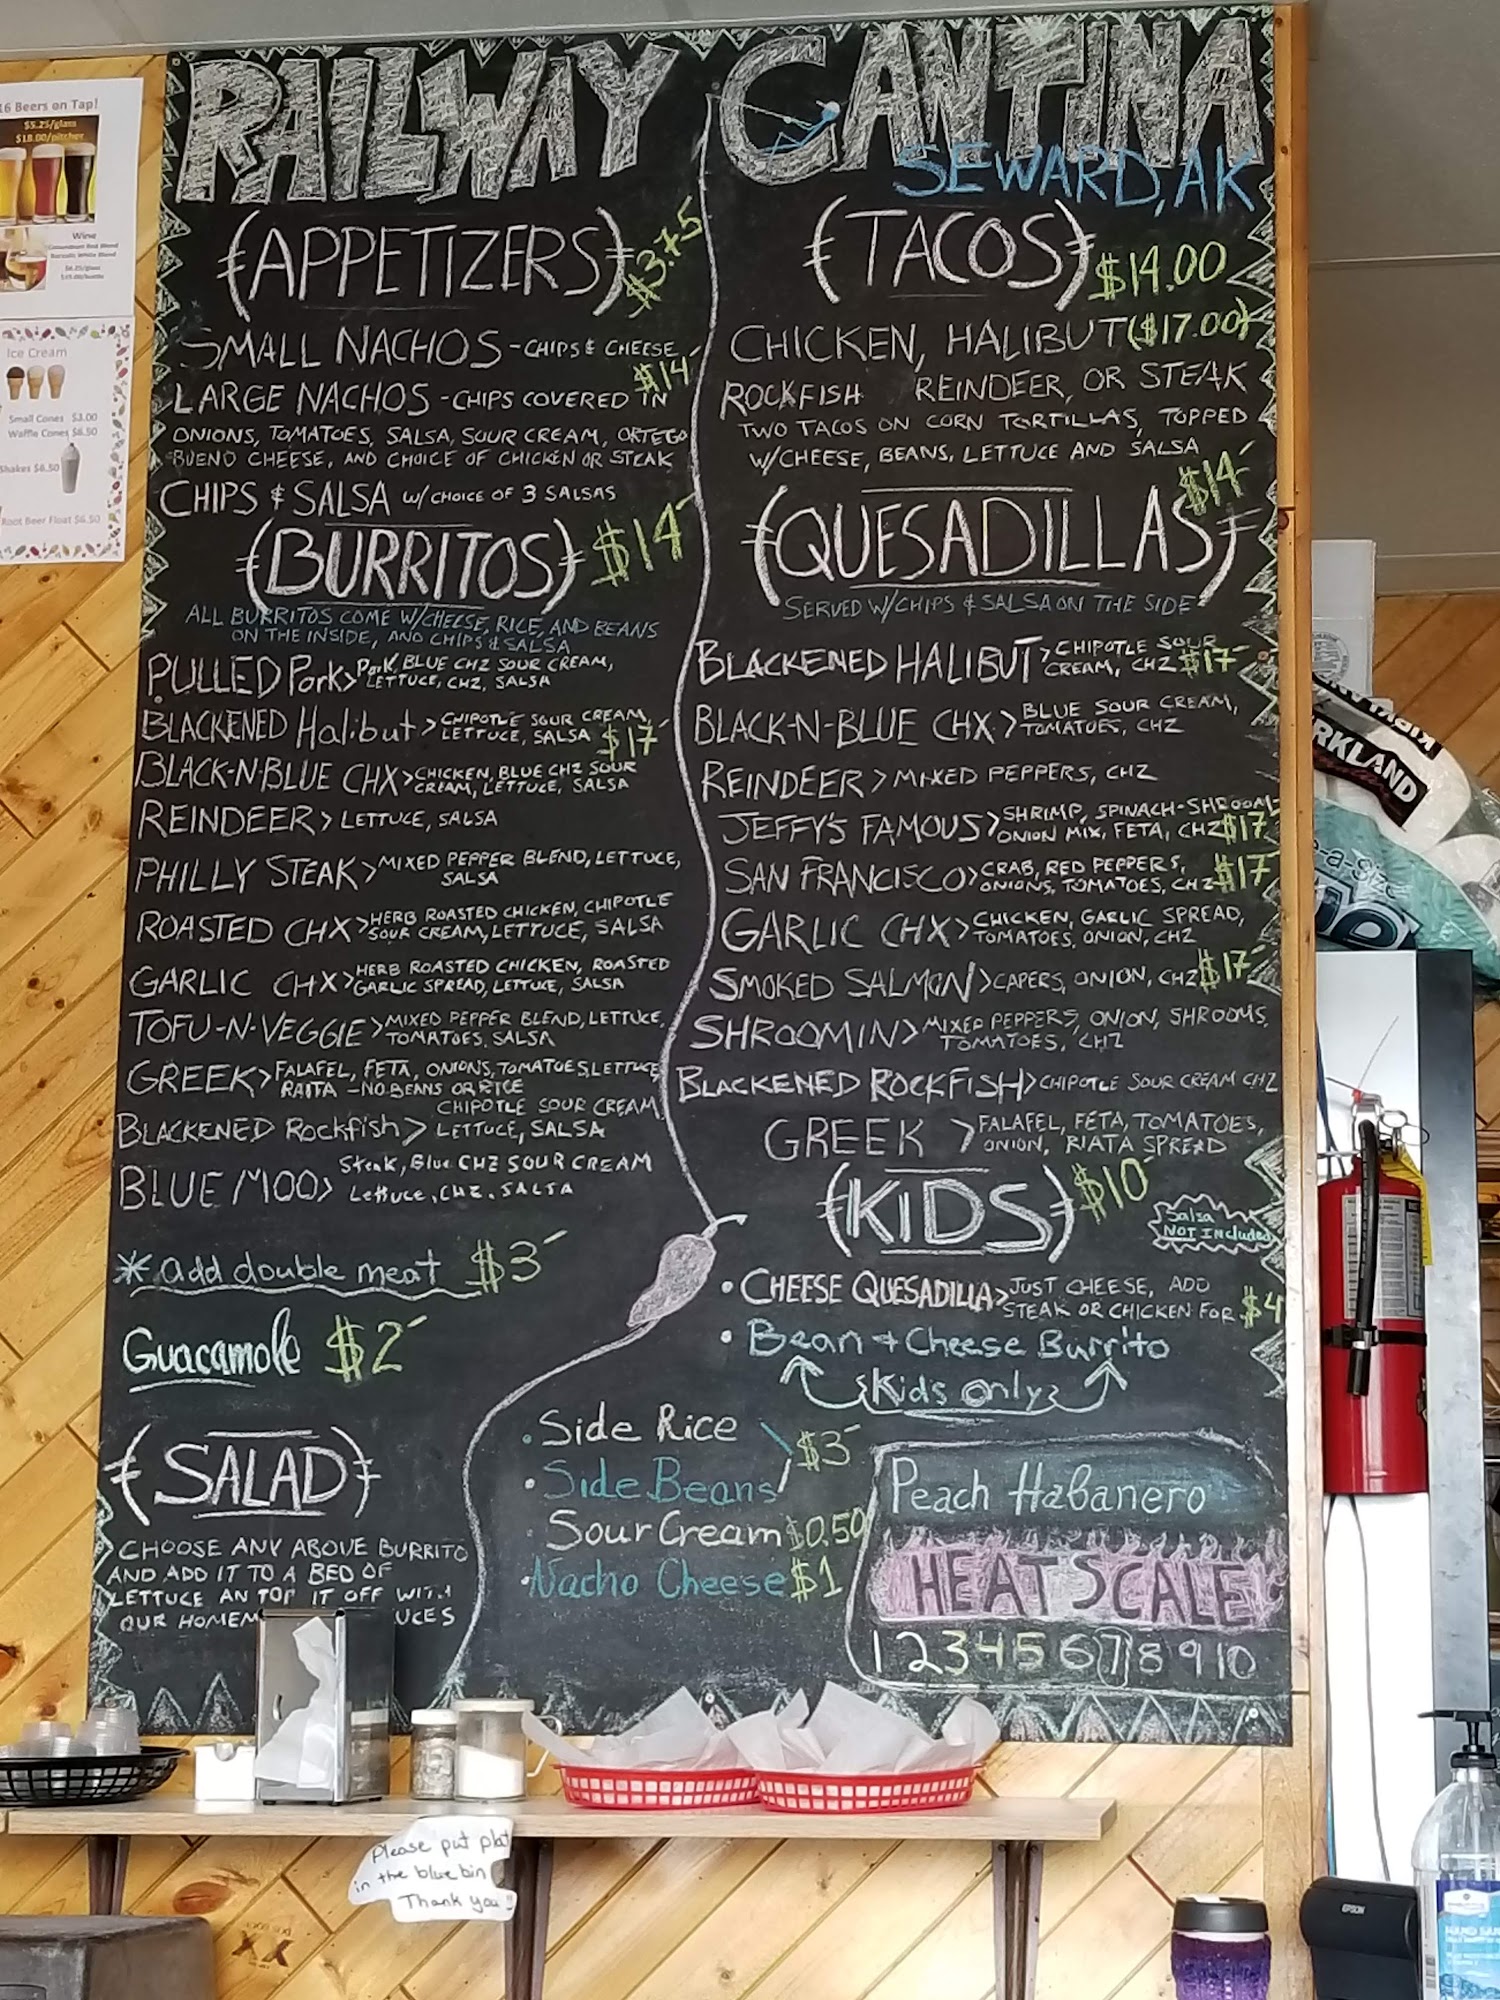 RAILWAY CANTINA
SEWARD, AK
(APPETIZERS) $3.75
SMALL NACHOS - CHIPS & CHEESE
LARGE NACHOS - CHIPS COVERED IN $14
ONIONS, TOMATOES, SALSA, SOUR CREAM, ORTEGO
BUENO CHEESE, AND CHOICE OF CHICKEN OR STEAK
CHIPS & SALSA W/ CHOICE OF 3 SALSAS
(BURRITOS) $14
ALL BURRITOS COME W/CHEESE, RICE, AND BEANS
ON THE INSIDE, AND CHIPS & SALSA
PULLED Pork > Pork, BLUE CHZ SOUR CREAM,
LETTUCE, CHZ, SALSA
BLACKENED Halibut > CHIPOTLE SOUR CREAM,
LETTUCE, SALSA $17
BLACK-N-BLUE CHX > CHICKEN, BLUE CHZ SOUR
CREAM, LETTUCE, SALSA
REINDEER > LETTUCE, SALSA
PHILLY STEAK > MIXED PEPPER BLEND, LETTUCE,
SALSA
ROASTED CHX > HERB ROASTED CHICKEN, CHIPOTLE
SOUR CREAM, LETTUCE, SALSA
GARLIC CHX > HERB ROASTED CHICKEN, ROASTED
GARLIC SPREAD, LETTUCE, SALSA
TOFU-N-VEGGIE > MIXED PEPPER BLEND, LETTUCE,
TOMATOES, SALSA
GREEK > FALAFEL, FETA, ONIONS, TOMATOES, LETTUCE,
RAITA - NO BEANS OR RICE
BLACKENED Rockfish > CHIPOTLE SOUR CREAM,
LETTUCE, SALSA
BLUE MOO > Steak, Blue CHZ SOUR CREAM
Lettuce, CHZ, SALSA
* add double meat $3
Guacamole $2
(SALAD)
CHOOSE ANY ABOVE BURRITO
AND ADD IT TO A BED OF
LETTUCE AN TOP IT OFF WITH
OUR HOMEM UCES
(TACOS) $14.00
CHICKEN, HALIBUT ($17.00)
ROCKFISH REINDEER, OR STEAK
TWO TACOS ON CORN TORTILLAS, TOPPED
W/CHEESE, BEANS, LETTUCE AND SALSA
(QUESADILLAS) $14
SERVED W/CHIPS & SALSA ON THE SIDE
BLACKENED HALIBUT > CHIPOTLE SOUR
CREAM, CHZ $17
BLACK-N-BLUE CHX > BLUE SOUR CREAM,
TOMATOES, CHZ
REINDEER > MIXED PEPPERS, CHZ
JEFFY'S FAMOUS > SHRIMP, SPINACH-SHROOM-
ONION MIX, FETA, CHZ $17
SAN FRANCISCO > CRAB, RED PEPPERS,
ONIONS, TOMATOES, CHZ $17
GARLIC CHX > CHICKEN, GARLIC SPREAD,
TOMATOES, ONION, CHZ
SMOKED SALMON > CAPERS, ONION, CHZ $17
SHROOMIN > MIXED PEPPERS, ONION, SHROOMS,
TOMATOES, CHZ
BLACKENED ROCKFISH > CHIPOTLE SOUR CREAM CHZ
GREEK > FALAFEL, FETA, TOMATOES,
ONION, RIATA SPREAD
(KIDS) $10
Salsa
NOT Included
• CHEESE QUESADILLA > JUST CHEESE, ADD
STEAK OR CHICKEN FOR $4
• Bean + Cheese Burrito
{Kids only}
• Side Rice
• Side Beans $3
Sour Cream $0.50
• Nacho Cheese $1
Peach Habanero
HEAT SCALE
1 2 3 4 5 6 7 8 9 10
16 Beers on Tap!
$5.25/glass
$18.00/pitcher
Wine
Ice Cream
Small Cones $3.00
Waffle Cones $6.50
Shakes $6.50
Root Beer Float $6.50
Please put plat
in the blue bin
Thank you!!
KIRKLAND
EPSON